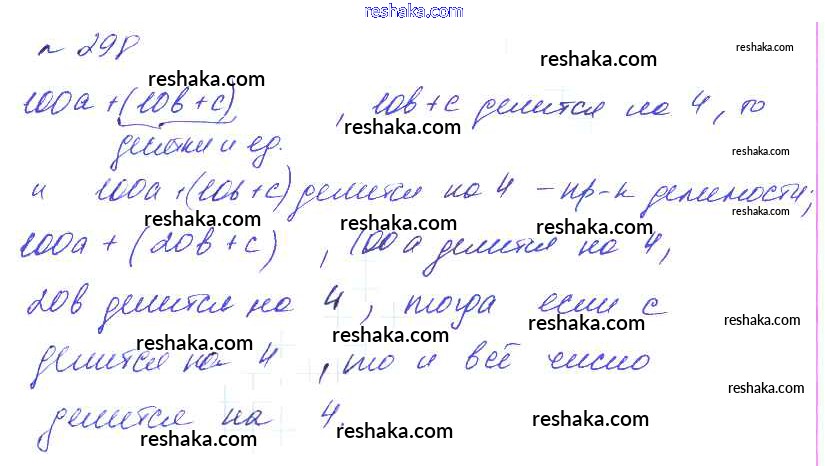 reshaka.com
n 298
reshaka.com
reshaka.com
reshaka.com
reshaka.com
100a + (10b + c), 10b + c делится на 4, то
reshaka.com
десятки и ед.
reshaka.com
и 100a + (10b + c) делится на 4 – пр-к делимости;
reshaka.com
reshaka.com
reshaka.com
reshaka.com
100a + (20b + c), 100a делится на 4,
20b делится на 4, тогда если c
reshaka.com
reshaka.com
reshaka.com
reshaka.com
делится на 4, то и всё число
reshaka.com
делится на 4.
reshaka.com
reshaka.com
reshaka.com